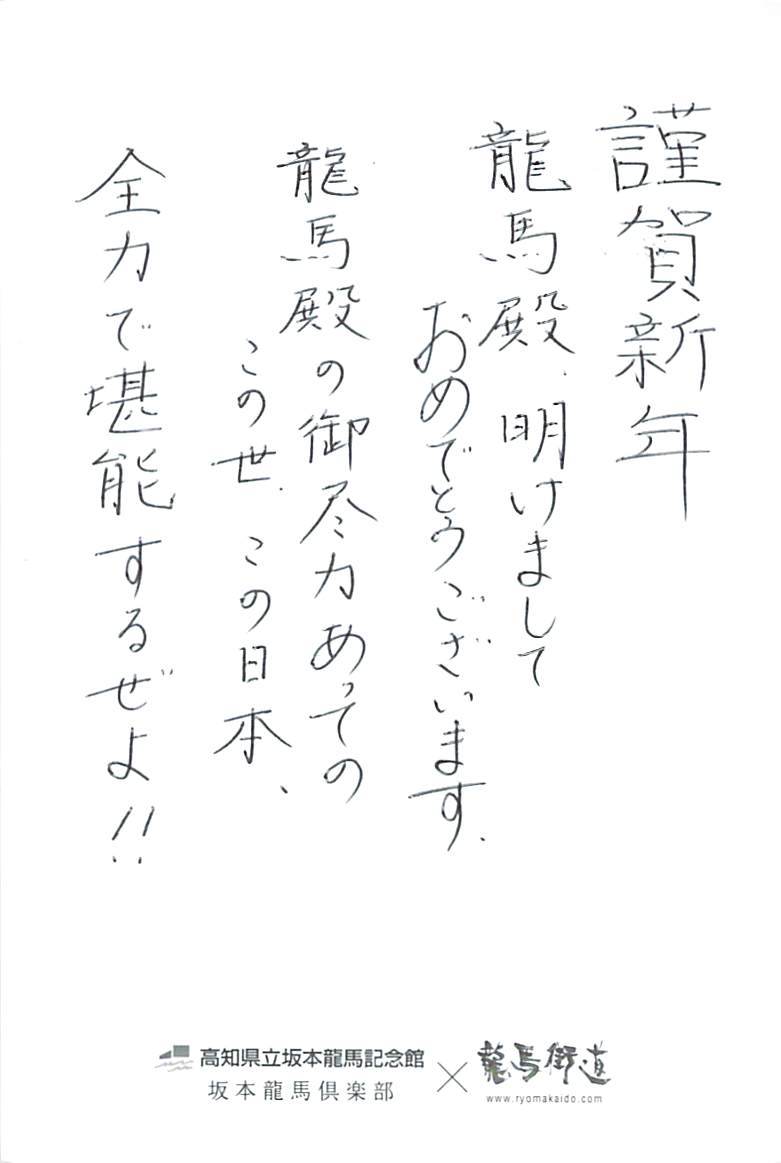 謹賀新年
龍馬殿、明けまして
おめでとうございます。
龍馬殿の御尽力あっての
この世、この日本、
全力で堪能するぜよ!!
高知県立坂本龍馬記念館
坂本龍馬倶楽部
×
龍馬街道
www.ryomakaido.com